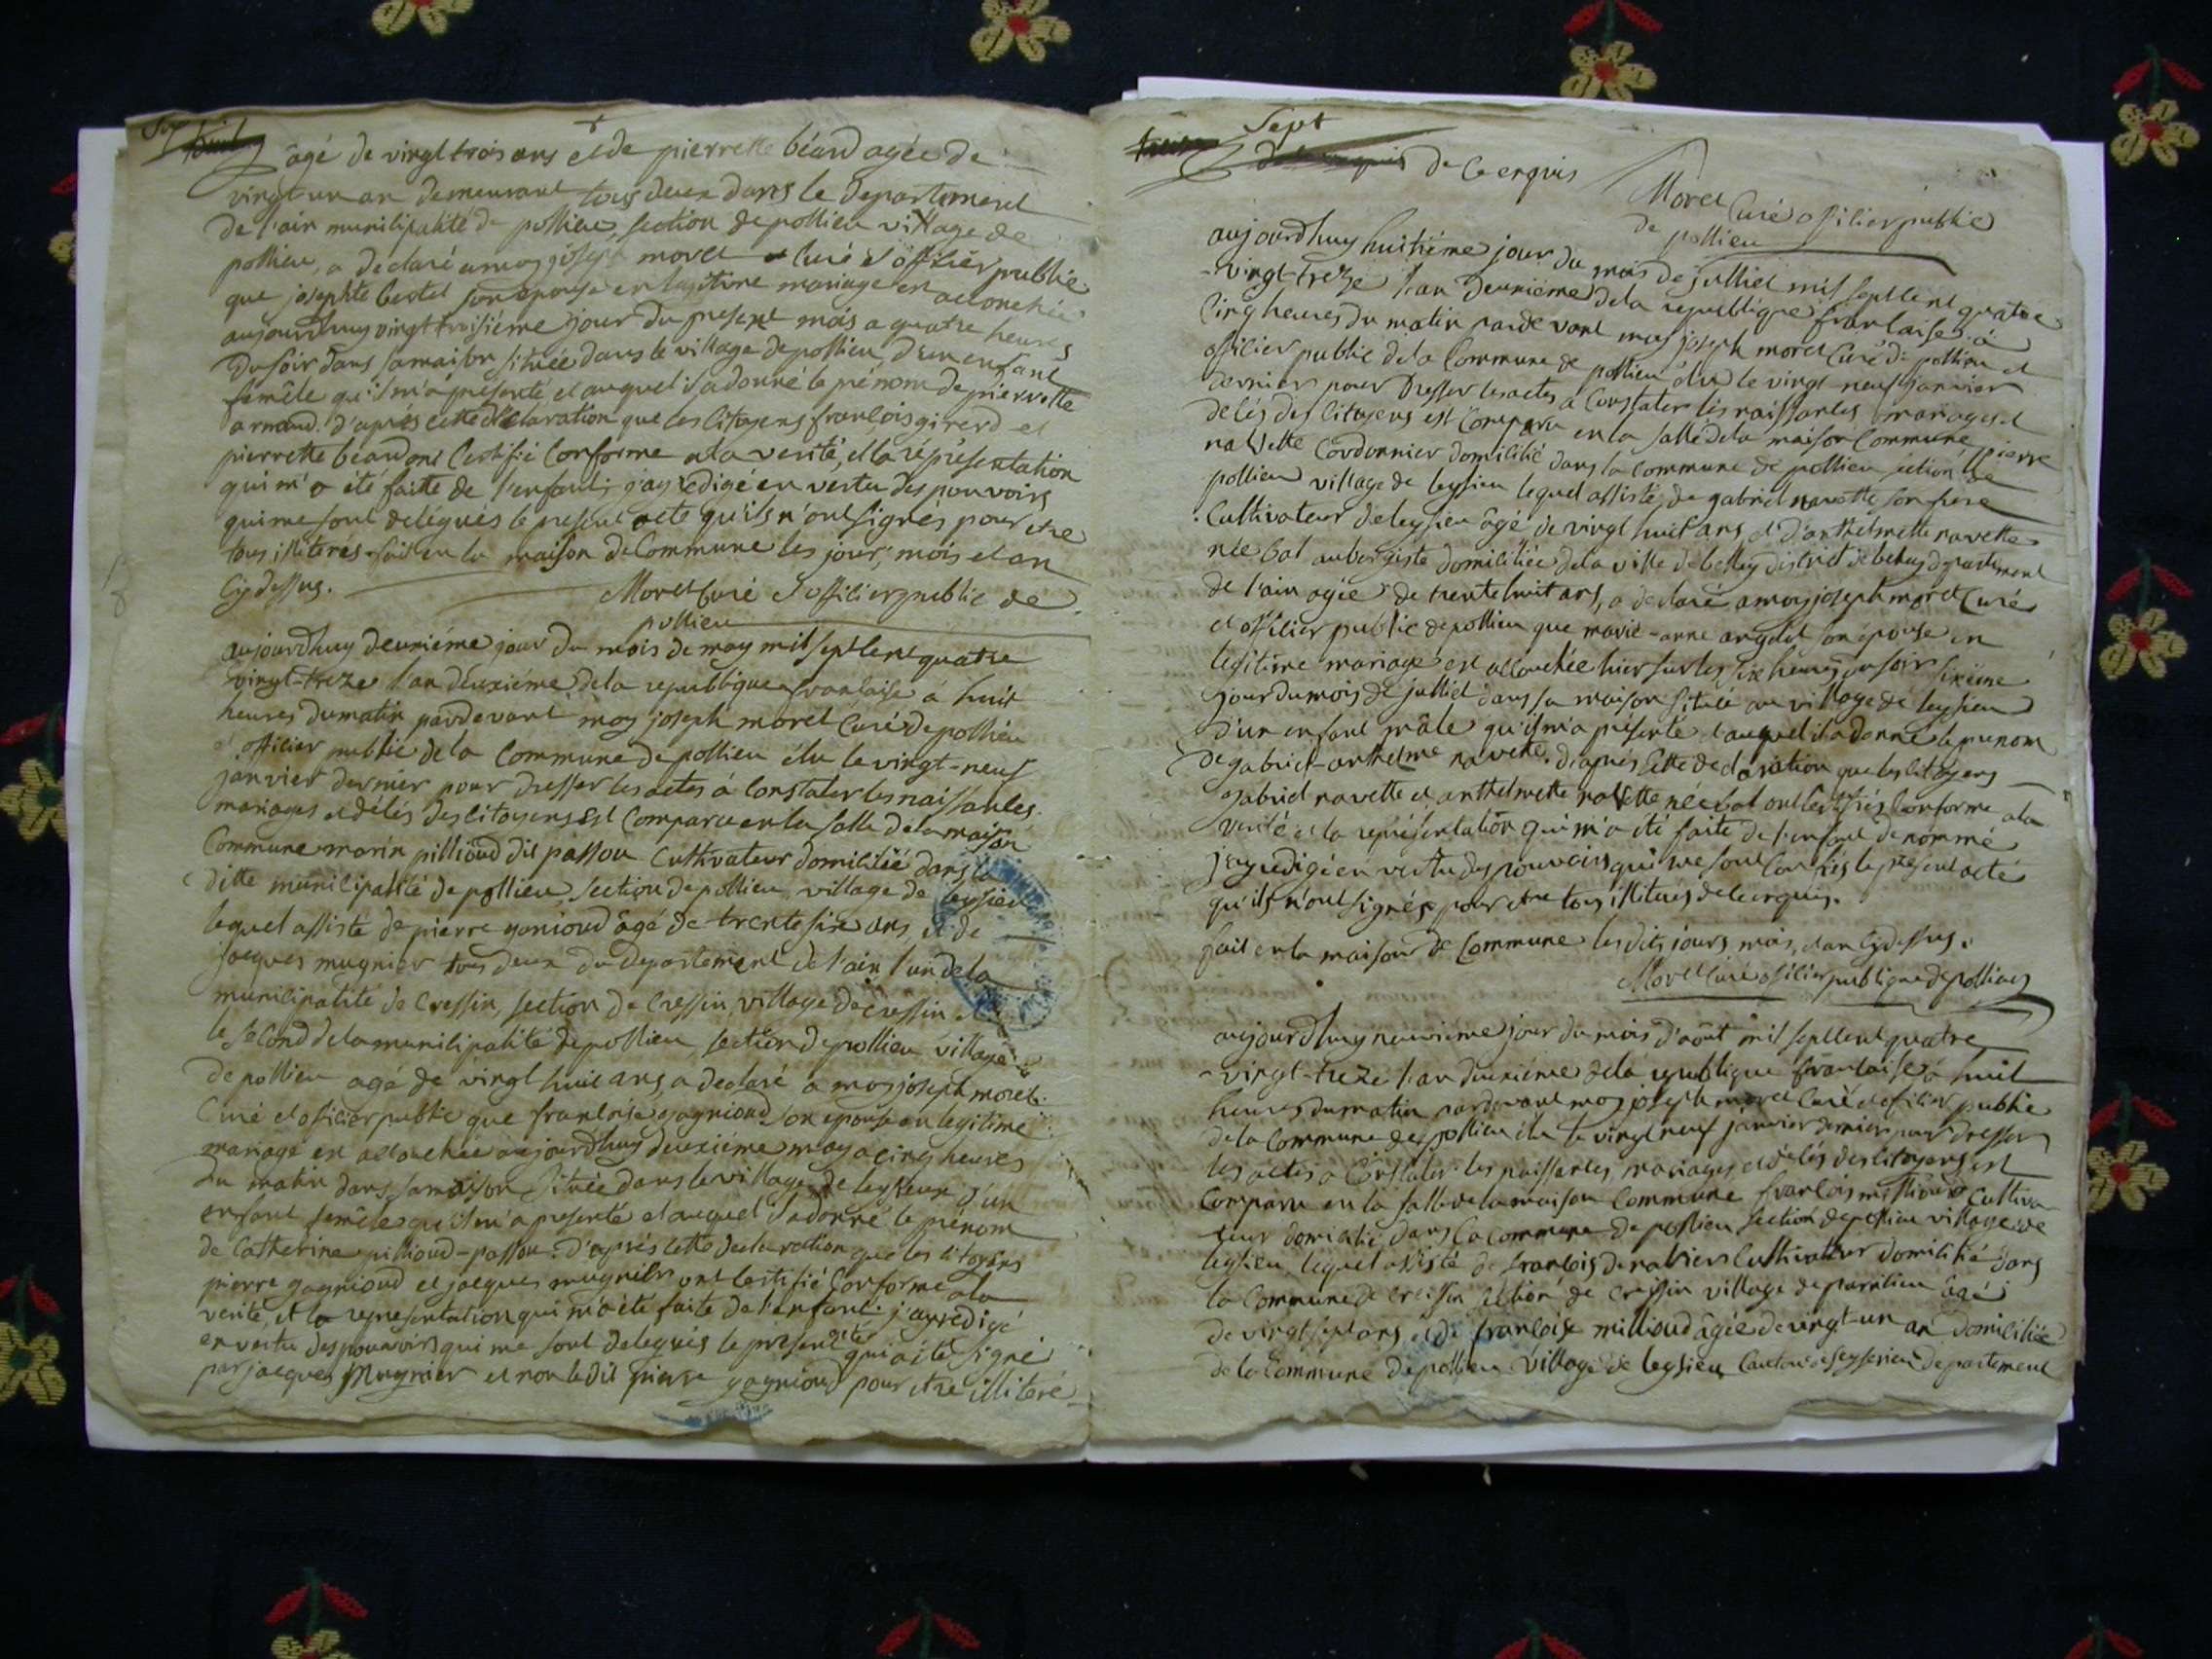 Six
âgé de vingt trois ans et de pierrette béard agée de
vingt un an demeurant tous deux dans le departement
de l'ain municipalité de pollieu, section de pollieu village de
pollieu, a declaré a moy joseph moret curé et officier public
que josephte bertet son epouse en legitime mariage est accouchée
aujourdhuy vingt troisiéme jour du present mois a quatre heures
du soir dans sa maison située dans le village de pollieu d'un enfant
femêle qu'il m'a présenté et auquel il a donné le prénom de pierrette
arnaud. d'aprés cette déclaration que les citoyens françois girerd et
pierrette béard ont certifié conforme a la verité, et la réprésentation
qui m'a été faite de l'enfant; j'ay redigé en vertu des pouvoirs
qui me sont delégués le present acte qu'ils n'ont signés pour etre
tous illiterés. fait en la maison de Commune les jour, mois et an
cy dessus.
Moret Curé et officier public de
pollieu
aujourdhuy deuxiéme jour du mois de may mil sept cent quatre
vingt-treze l'an deuxieme de la republique francaise à huit
heures du matin pardevant moy joseph moret Curé de pollieu
et officier public de la Commune de pollieu élu le vingt-neuf
janvier dernier pour dresser les actes à constater les naissances
mariages et décés des citoyens est comparu en la salle de la maison
Commune marin pillioud dit passou Cultivateur domicilié dans la
ditte municipalité de pollieu, section de pollieu village de leysieu
lequel assisté de pierre gagnioud âgé de trente six ans, et de
jacques mugnier tous deux du departement de l'ain l'un de la
municipalité de Cressin, section de Cressin, village de cressin et
le second de la municipalité de pollieu, section de pollieu village
de pollieu agé de vingt huit ans, a declaré a moy joseph moret
Curé et officier public que francoise gagnioud son epouse en legitime
mariage est accouchée aujourdhuy deuxiéme may a cinq heures
du matin dans sa maison située dans le village de leysieux d'un
enfant femêle qu'il m'a presenté et auquel il a donné le prénom
de Catherine pillioud-passou. d'aprés cette declaration que les citoyens
pierre gagnioud et jacques mugnier ont certifié conforme a la
verité, et la representation qui m'a été faite de l'enfant. j'ay redigé
en vertu des pouvoirs qui me sont delegués le present acte qui a été signé
par jacques Mugnier et non le dit pierre gagnioud pour etre illiteré
Sept
de ce enquis
Moret Curé officier public
de pollieu
aujourdhuy huitiéme jour du mois de julliet mil sept cent quatre
-vingt-treze l'an deuxiéme de la republique francaise à
cinq heures du matin pardevant moy joseph moret Curé de pollieu et
officier public de la Commune de pollieu élu le vingt neuf janvier
dernier pour dresser les actes a constater les naissances mariages et
décés des citoyens est comparu en la salle de la maison Commune, pierre
navette Cordonnier domicilié dans la commune de pollieu section de
pollieu village de leysieu lequel assisté de gabriel navette son frere
Cultivateur de leysieu âgé de vingt huit ans, et d'anthelmette navette
née bal aubergiste domiciliée de la ville de belley district de belley departement
de l'ain agée de trente huit ans, a declaré a moy joseph moret Curé
et officier public de pollieu que marie-anne angelot son épouse en
legitime mariage est accouchée hier sur les six heures du soir sixieme
jour du mois de julliet dans sa maison située au village de leysieu
d'un enfant mâle qu'il m'a présenté et auquel il a donné le prenom
de gabriel-anthelme navette. d'aprés cette declaration que les citoyens
gabriel navette et anthelmette navette née bal ont certifiés conforme a la
verité et la représentation qui m'a été faite de l'enfant denommé
j'ay redigé en vertu des pouvoirs qui me sont confiés le présent acte
qu'ils n'ont signés pour etre tous illiterés de ce enquis.
fait en la maison de Commune les dits jours mois, et an cy dessus.
Moret Curé officier publique de pollieu
aujourdhuy neuvieme jour du mois d'août mil sept cent quatre
-vingt-treze l'an deuxiéme de la republique francaise à huit
heures du matin pardevant moy joseph moret Curé et officier public
de la Commune de pollieu élu le vingt neuf janvier dernier pour dresser
les actes a Constater les naissances, mariages, et décés des citoyens est
Comparu en la salle de la maison Commune francois millioud Cultiva-
teur domicilié dans la commune de pollieu section de pollieu village de
leysieu, lequel assisté de francois Cultivateur domicilié dans
la Commune de cressin section de cressin village de parnitieu âgé
de vingt sept ans, et de francoise millioud âgée de vingt-un an domiciliée
de la Commune de pollieu village de leysieu Canton de seysserieu departement